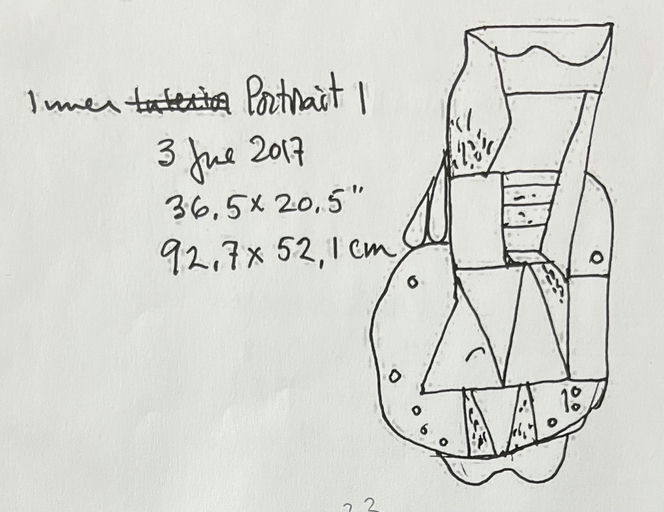 Inner Interior Portrait 1
3 June 2017
36.5 x 20.5"
92.7 x 52,1 cm